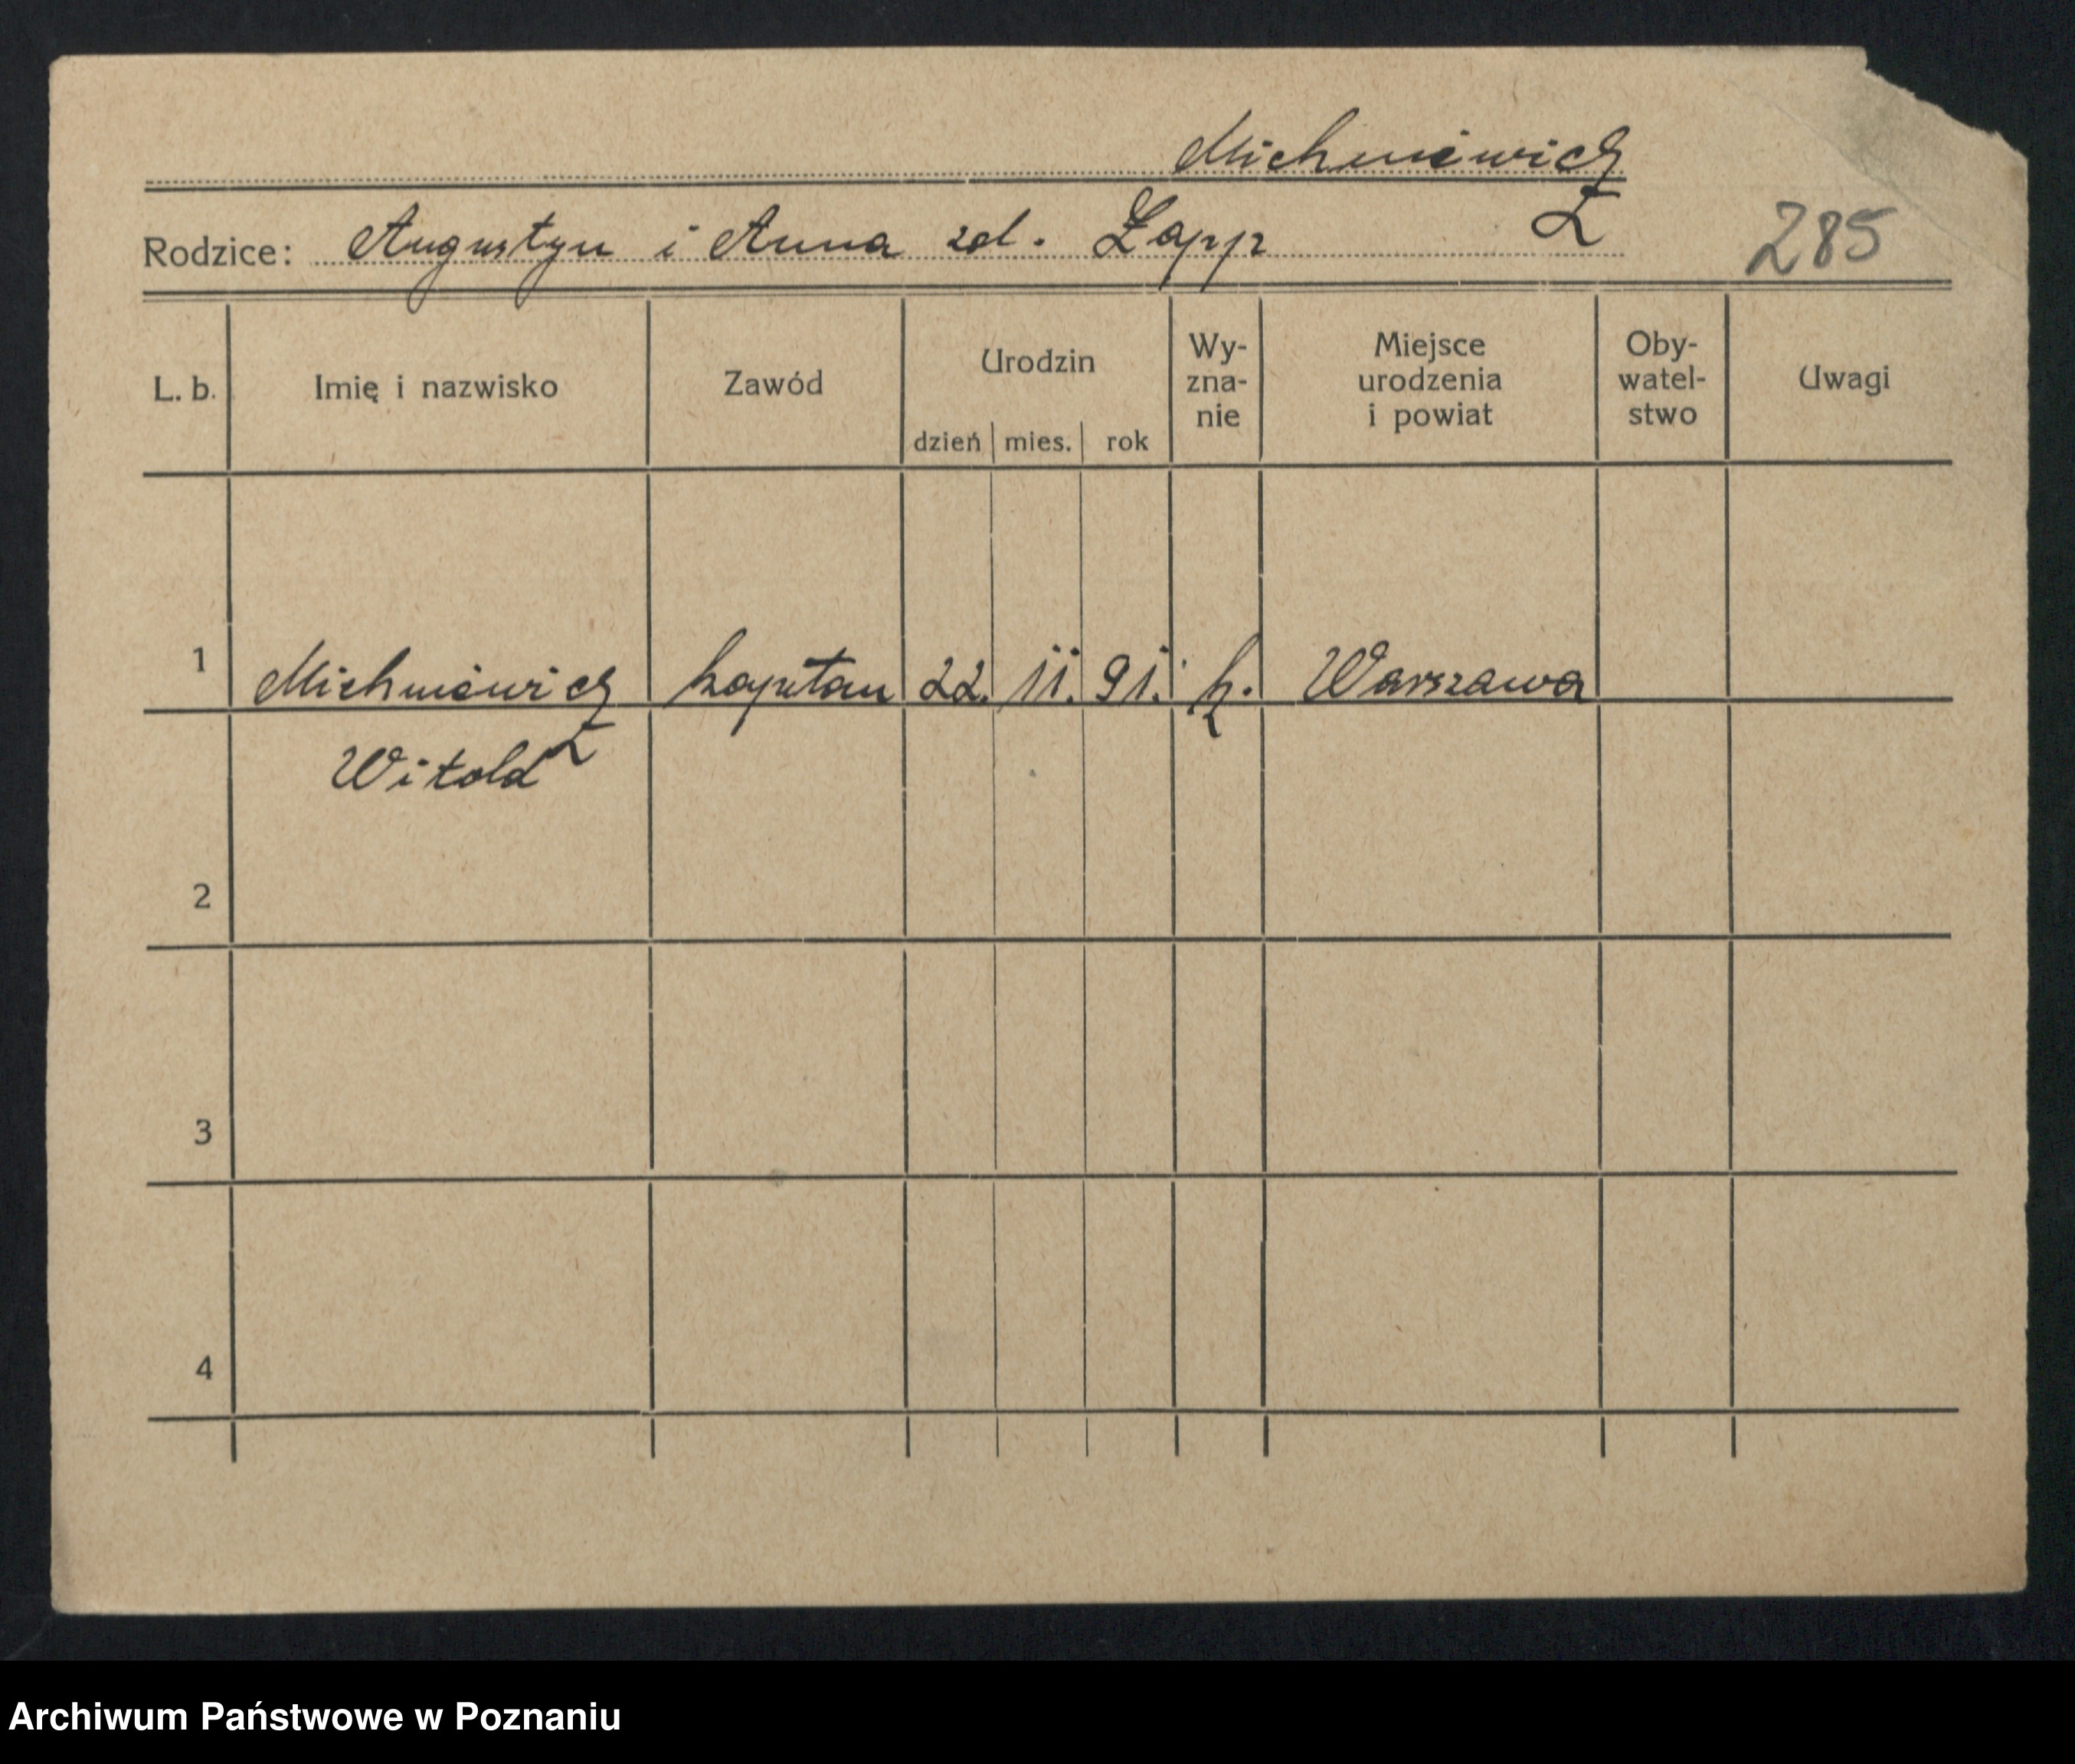 Michniewicz
Rodzice: Augustyn i Anna zd. Łapp
285
L. b. Imię i nazwisko Zawód Urodzin dzień mies. rok Wy-zna-nie Miejsce urodzenia i powiat Oby-watel-stwo Uwagi
1 Michniewicz kapitan 22. 11. 91. k. Warszawa
Witold
2
3
4
Archiwum Państwowe w Poznaniu